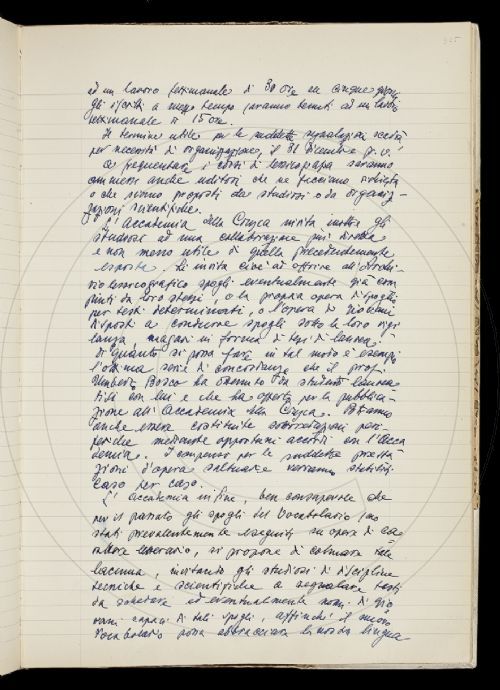 ad un lavoro settimanale di 30 ore in cinque giorni;
gli iscritti a mezzo tempo saranno tenuti ad un lavoro
settimanale di 15 ore.
Il termine utile per le suddette segnalazioni scadrà
per necessità di organizzazione, il 31 Dicembre p.v.
A frequentare i corsi di lessicografia saranno
ammessi anche uditori che ne facciano richiesta
o che siano proposti da studiosi o da organiz-
zazioni scientifiche.
L'Accademia della Crusca invita inoltre gli
studiosi ad una collaborazione più diretta
e non meno utile di quella precedentemente
esposta. Li invita cioè ad offrire all'Archi-
vio lessicografico spogli eventualmente già com
piuti da loro stessi, o la propria opera di spoglio
per testi determinati, o l'opera di giovani
disposti a condurre spogli sotto la loro vigi
lanza, magari in forma di tesi di laurea.
Di quanto si possa fare in tal modo è esempio
l'ottima serie di concordanze che il prof.
Umberto Bosco ha eseguito da studenti laurea
ti con lui e che ha offerto per la pubblica-
zione all'Accademia della Crusca. Potranno
anche essere costituite collaborazioni peri-
feriche mediante opportuni accordi con l'Acca
demia. I compensi per le suddette presta
zioni d'opera saltuarie verranno stabiliti
caso per caso.
L'Accademia infine, ben consapevole che
per il passato gli spogli del Vocabolario sono
stati prevalentemente eseguiti su opere di ca-
rattere letterario, si propone di colmare tale
lacuna, invitando gli studiosi di discipline
tecniche e scientifiche a segnalare testi
da schedare ed eventualmente nomi di gio
vani capaci di tali spogli, affinché il nuovo
Vocabolario possa abbracciare la nostra lingua